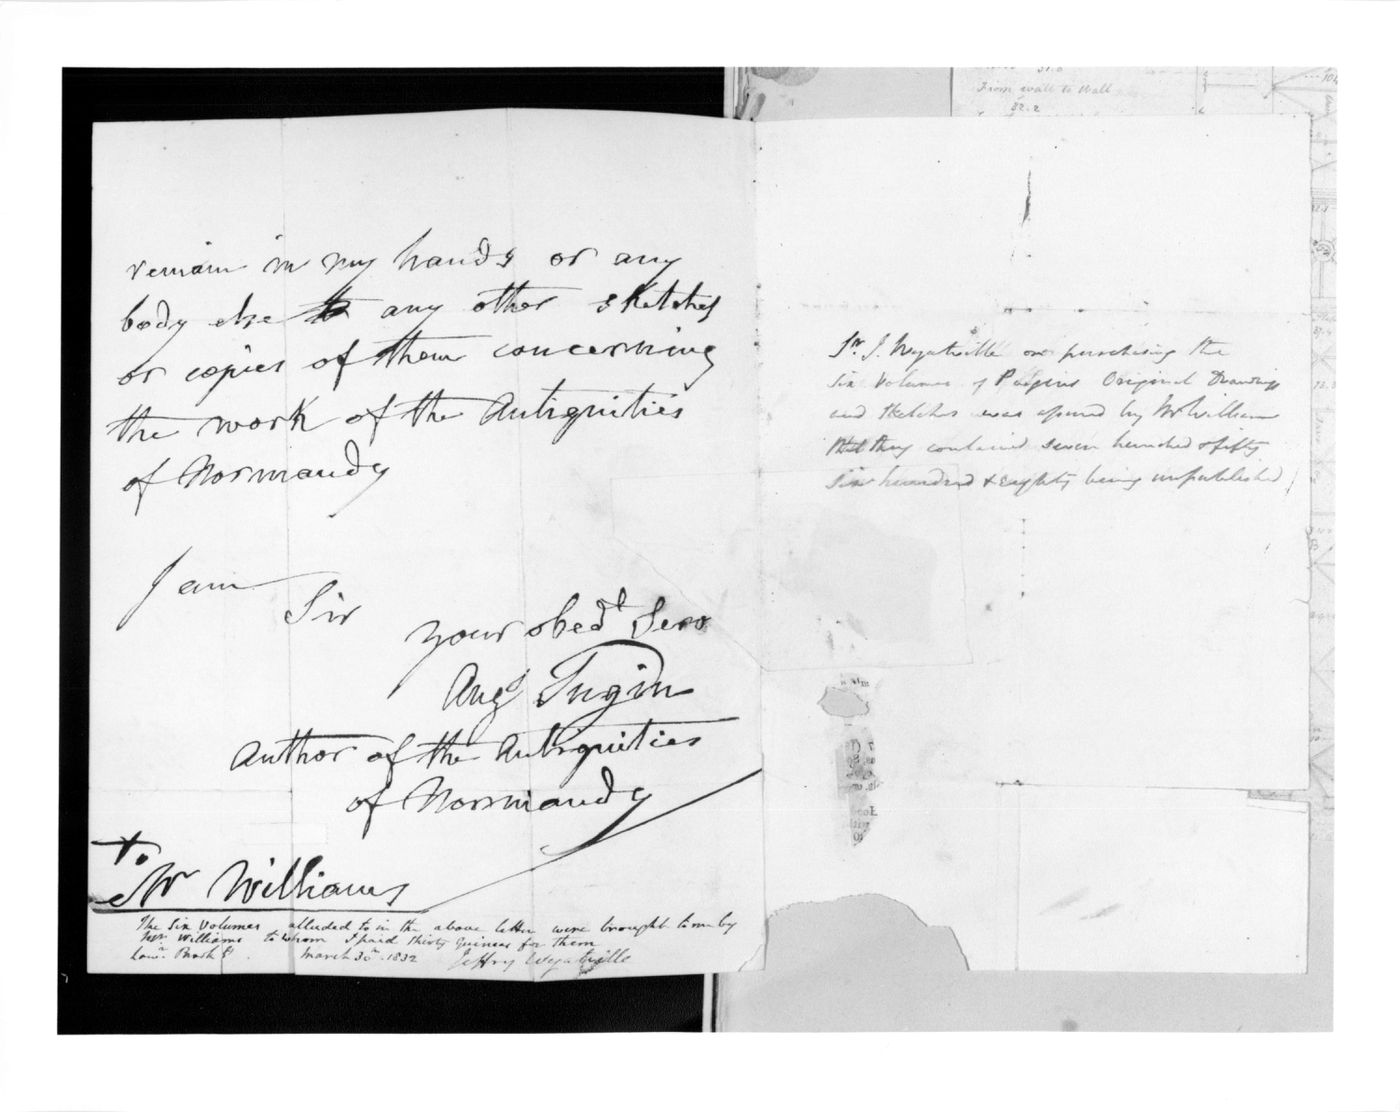 remain in my hands or any
body else to any other sketches
or copies of them concerning
the work of the Antiquities
of Normandy
I am
Sir
your obedt Serv
Augs Pugin
Author of the Antiquities
of Normandy
to
Mr Williams
The Six Volumes alluded to in the above letter were brought to me by
Mr Williams to whom I paid thirty Guineas for them
Lowr Brook St March 30th 1832 Jeffry Wyatville
From wall to Wall
32.2
Sr J. Wyatville on purchasing the
Six Volumes of Pugins Original Drawings
and Sketches was assured by Mr Williams
that they contained seven hundred & fifty
Six hundred & Eighty being unpublished